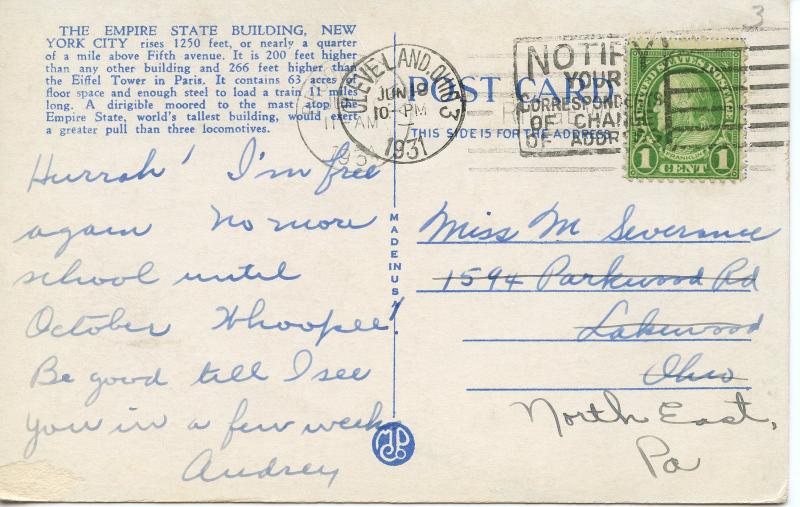 THE EMPIRE STATE BUILDING, NEW
YORK CITY rises 1250 feet, or nearly a quarter
of a mile above Fifth avenue. It is 200 feet higher
than any other building and 266 feet higher than
the Eiffel Tower in Paris. It contains 63 acres of
floor space and enough steel to load a train 11 miles
long. A dirigible moored to the mast atop the
Empire State, world's tallest building, would exert
a greater pull than three locomotives.
Hurrah! I'm free
again No more
school until
October Whoopee!
Be good till I see
you in a few weeks
Audrey
MADE IN USA
3
CLEVELAND, OHIO 3
JUN 18
10-PM
1931
11 AM
1931
POST CARD
THIS SIDE IS FOR THE ADDRESS
NOTIFY
YOUR
CORRESPONDENTS
OF CHAN
OF ADDR
UNITED STATES POSTAGE
FRANKLIN
1 CENT 1
Miss M Severance
1594 Parkwood Rd
Lakewood
Ohio
North East,
Pa